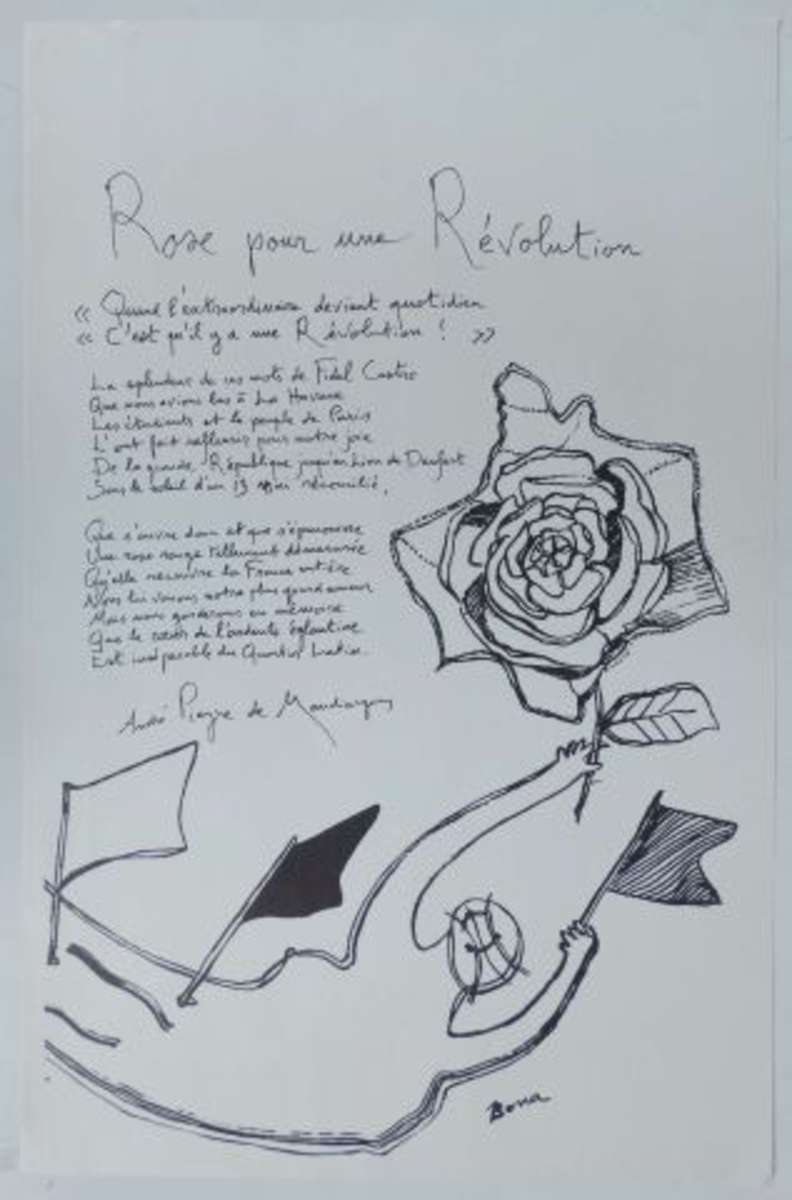 Rose pour une Révolution
« Quand l'extraordinaire devient quotidien
« C'est qu'il y a une Révolution ! »
La splendeur de ces mots de Fidel Castro
Que nous avions lus à La Havane
Les étudiants et le peuple de Paris
L'ont fait refleurir pour notre joie
De la grande République jusqu'au Lion de Denfert
Sous le soleil d'un 13 mai réconcilié,
Que s'ouvre donc et que s'épanouisse
Une rose rouge tellement démesurée
Qu'elle recouvrira la France entière
Nous lui vouons notre plus grand amour
Mais nous garderons en mémoire
Que le cœur de l'ardente églantine
Est inséparable du Quartier Latin.
André Pieyre de Mandiargues
Bona